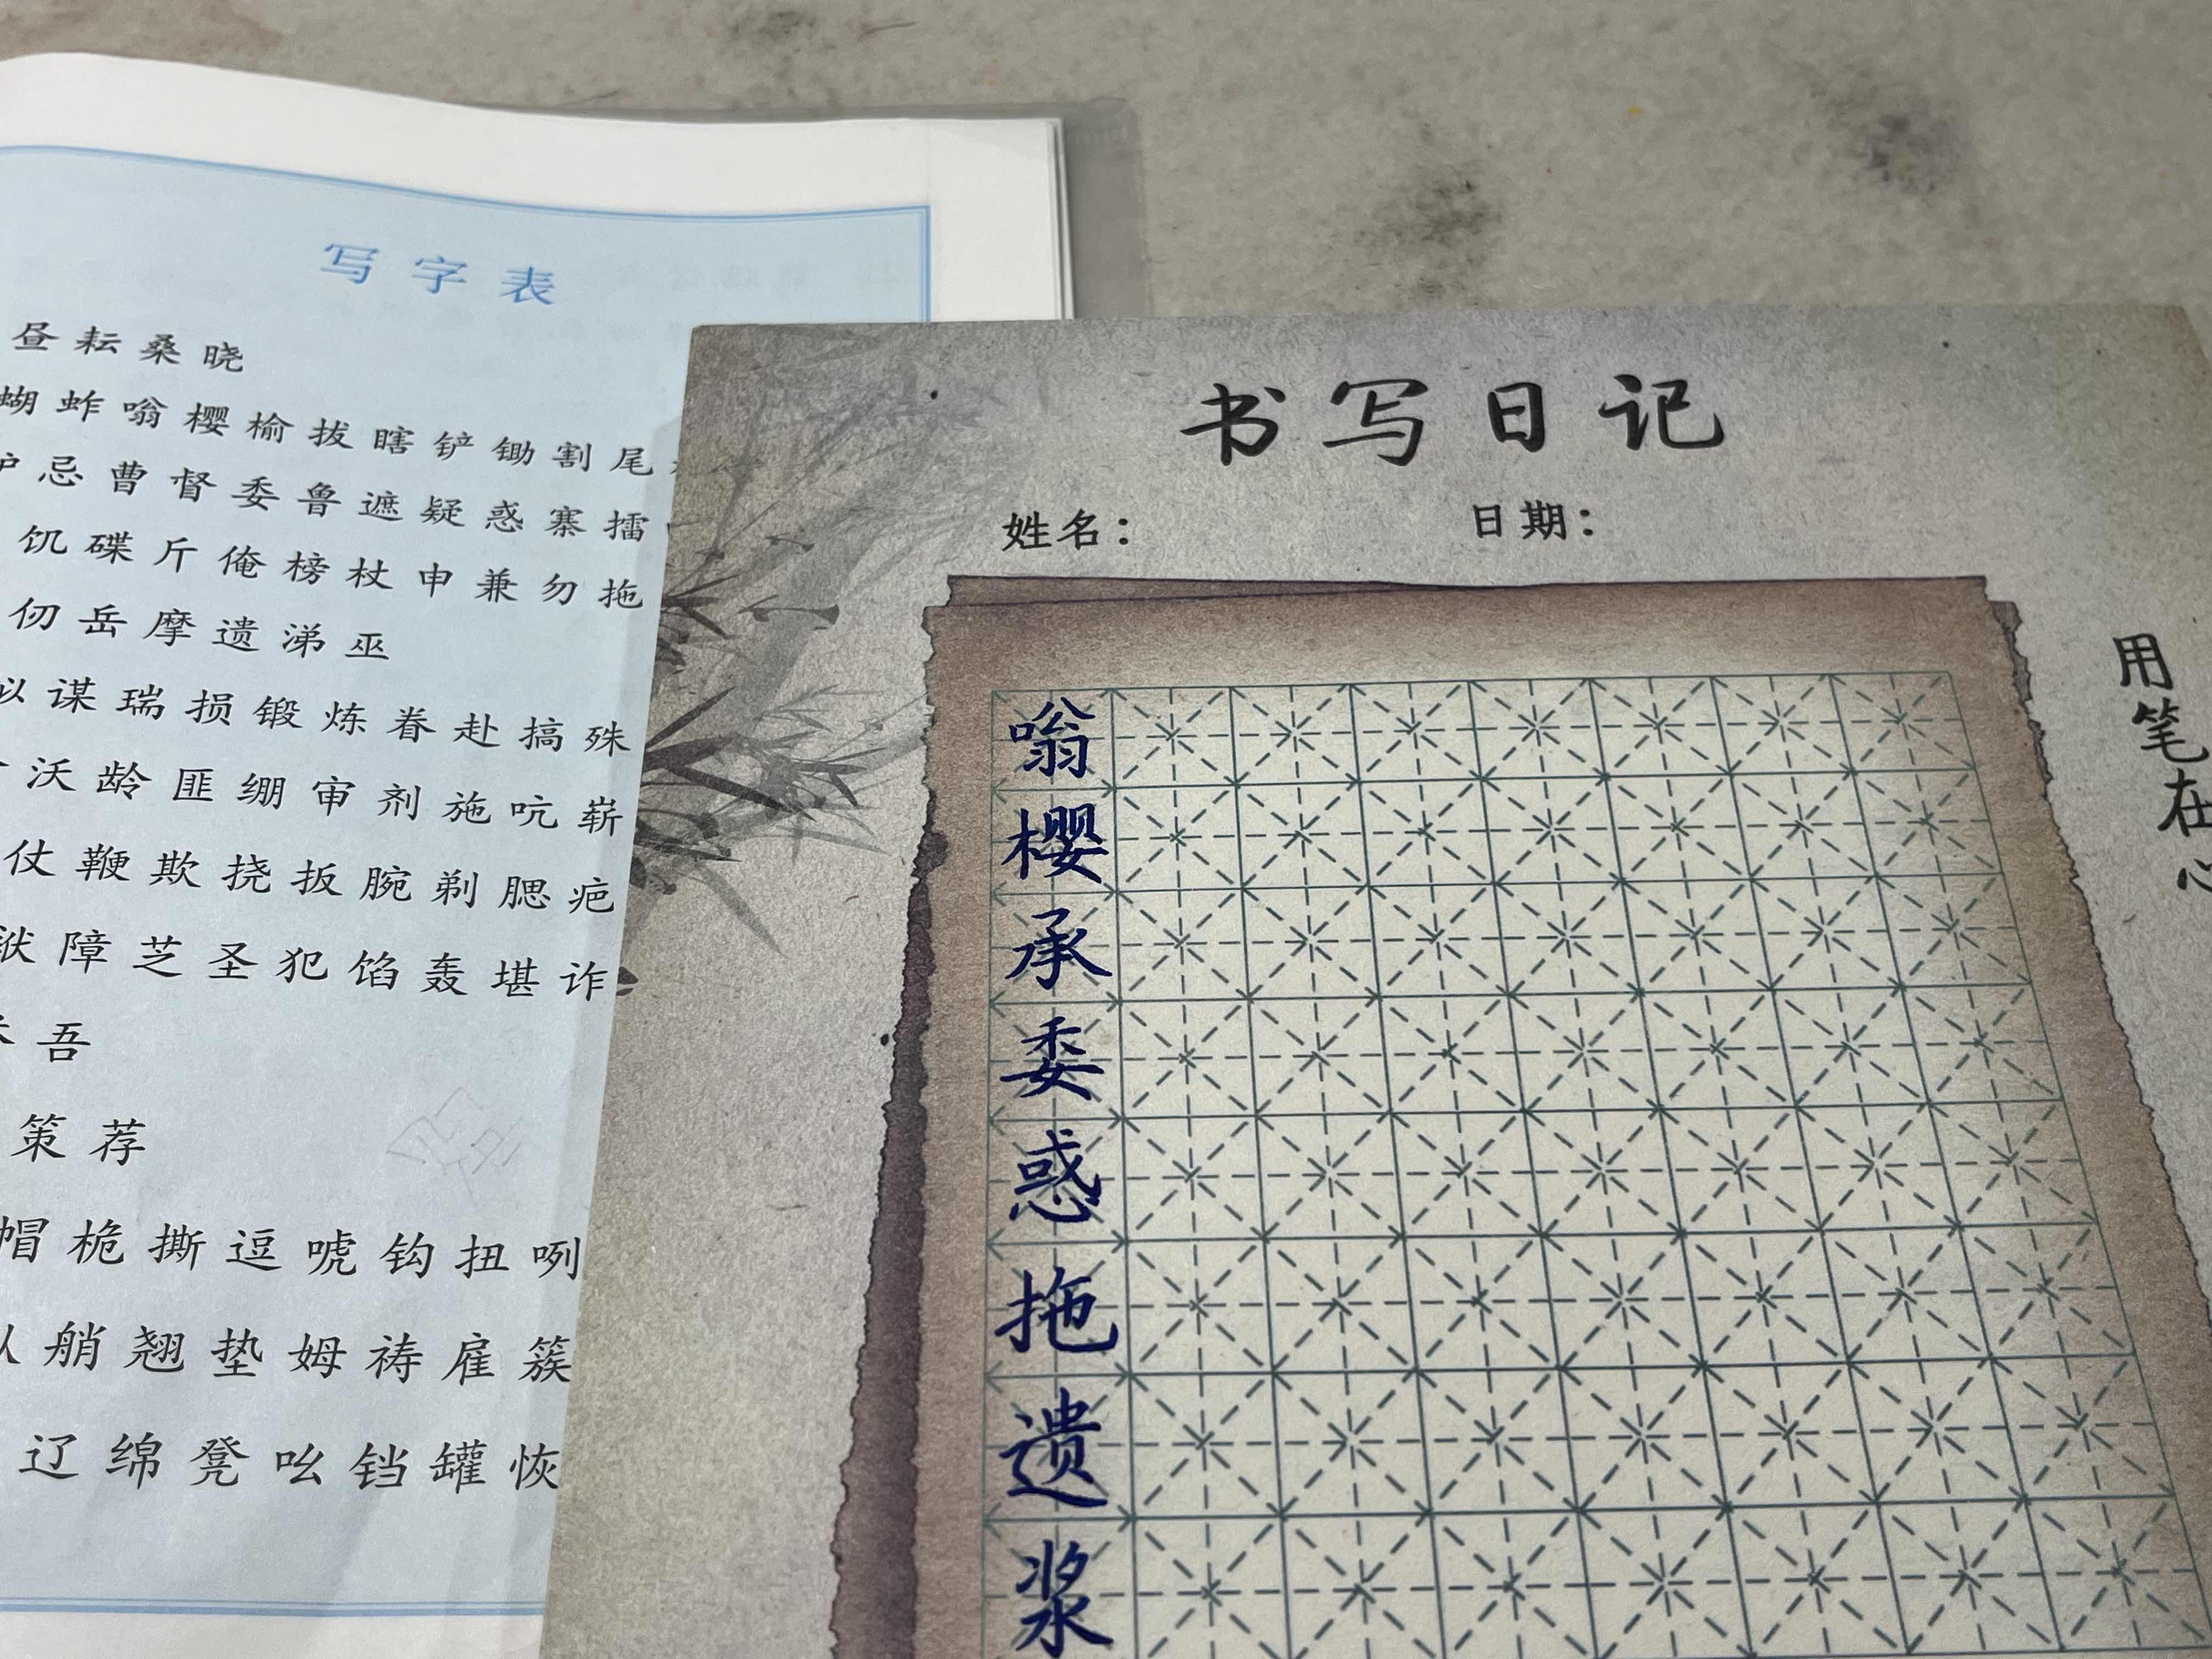 写字表
昼 耘 桑 晓
蝴 蚱 嗡 樱 榆 拔 瞎 铲 锄 割 尾
妒 忌 曹 督 委 鲁 遮 疑 惑 寨 擂
饥 碟 斤 俺 榜 杖 申 兼 勿 拖
仞 岳 摩 遗 涕 巫
拟 谋 瑞 损 锻 炼 眷 赴 搞 殊
沃 龄 匪 绷 审 剂 施 吭 崭
仗 鞭 欺 挠 扳 腕 剃 腮 疤
障 芝 圣 犯 馅 轰 堪 诈
吾
策 荐
帽 桅 撕 逗 唬 钩 扭 咧
艄 翘 垫 姆 祷 雇 簇
辽 绵 凳 吆 铛 罐 恢
书写日记
姓名： 日期：
嗡
樱
承
委
惑
拖
遗
浆
用笔在心